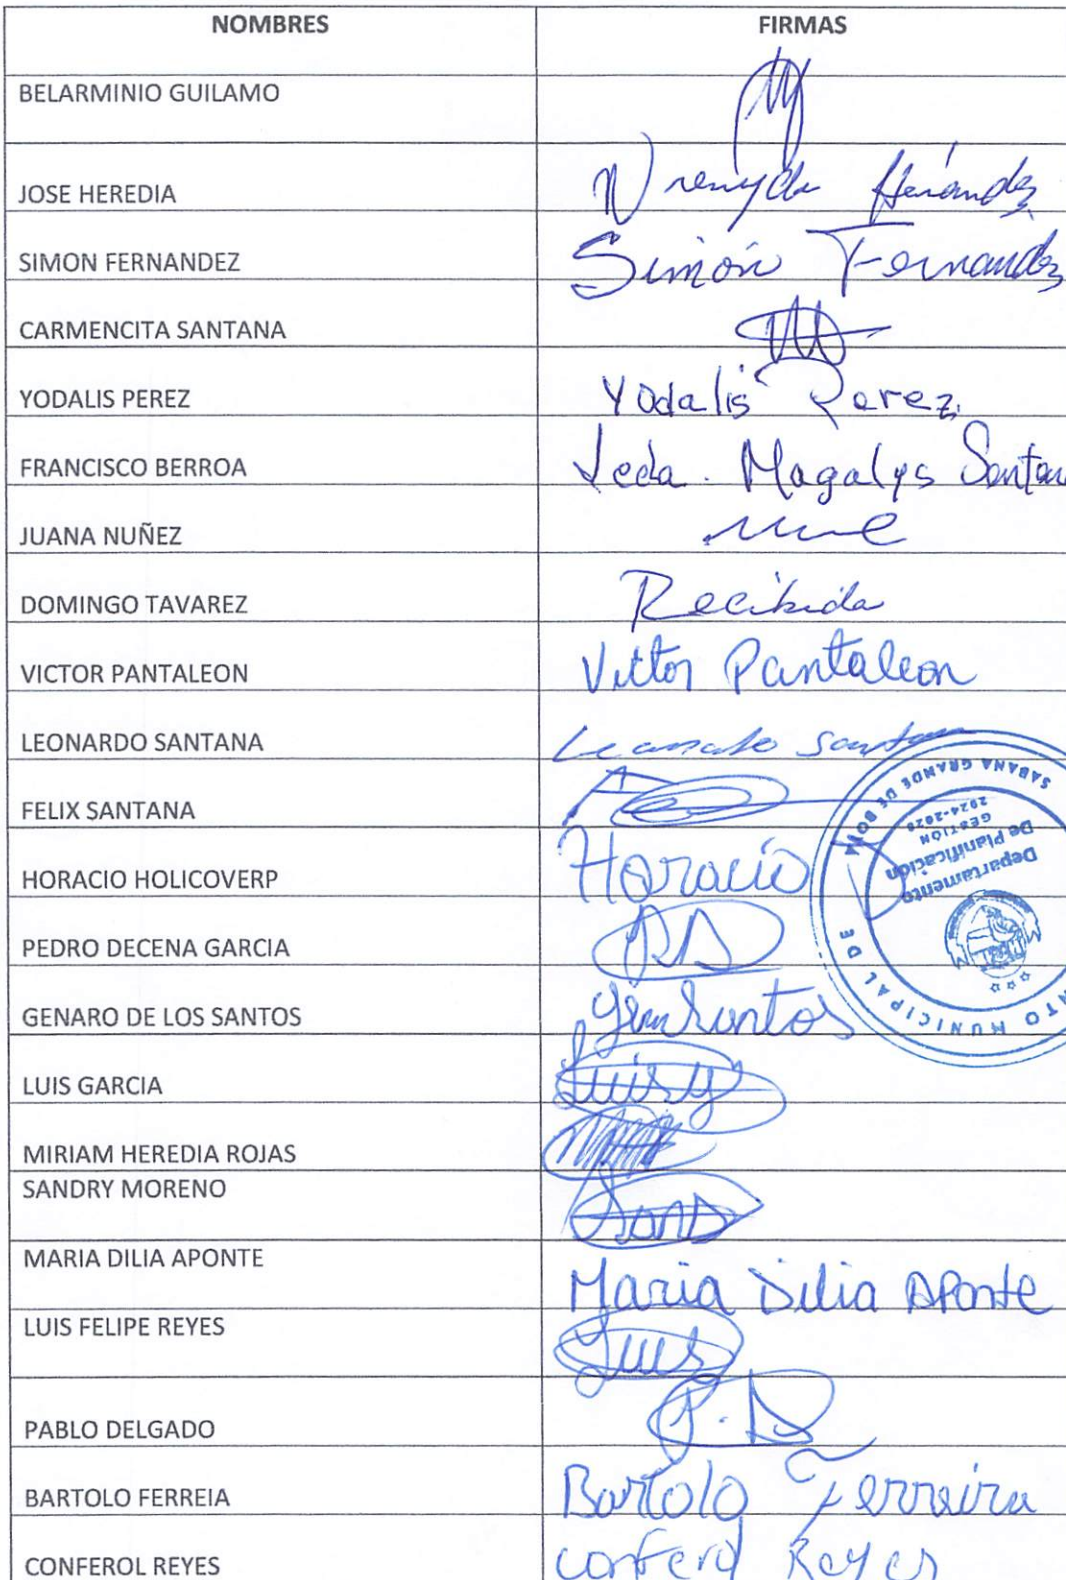 NOMBRES FIRMAS
BELARMINIO GUILAMO
JOSE HEREDIA
SIMON FERNANDEZ Simón Fernandez
CARMENCITA SANTANA
YODALIS PEREZ Yodalis Perez
FRANCISCO BERROA Magalys
JUANA NUÑEZ
DOMINGO TAVAREZ Recibida
VICTOR PANTALEON Victor Pantaleon
LEONARDO SANTANA
FELIX SANTANA
HORACIO HOLICOVERP Horacio
PEDRO DECENA GARCIA
GENARO DE LOS SANTOS
LUIS GARCIA
MIRIAM HEREDIA ROJAS
SANDRY MORENO
MARIA DILIA APONTE Maria Dilia Aponte
LUIS FELIPE REYES Luis
PABLO DELGADO P.D
BARTOLO FERREIA Bartolo Ferreira
CONFEROL REYES Conferol Reyes
MUNICIPAL DE
SABANA GRANDE DE BOYA
Departamento
De Planificación
GESTIÓN
2024-2028